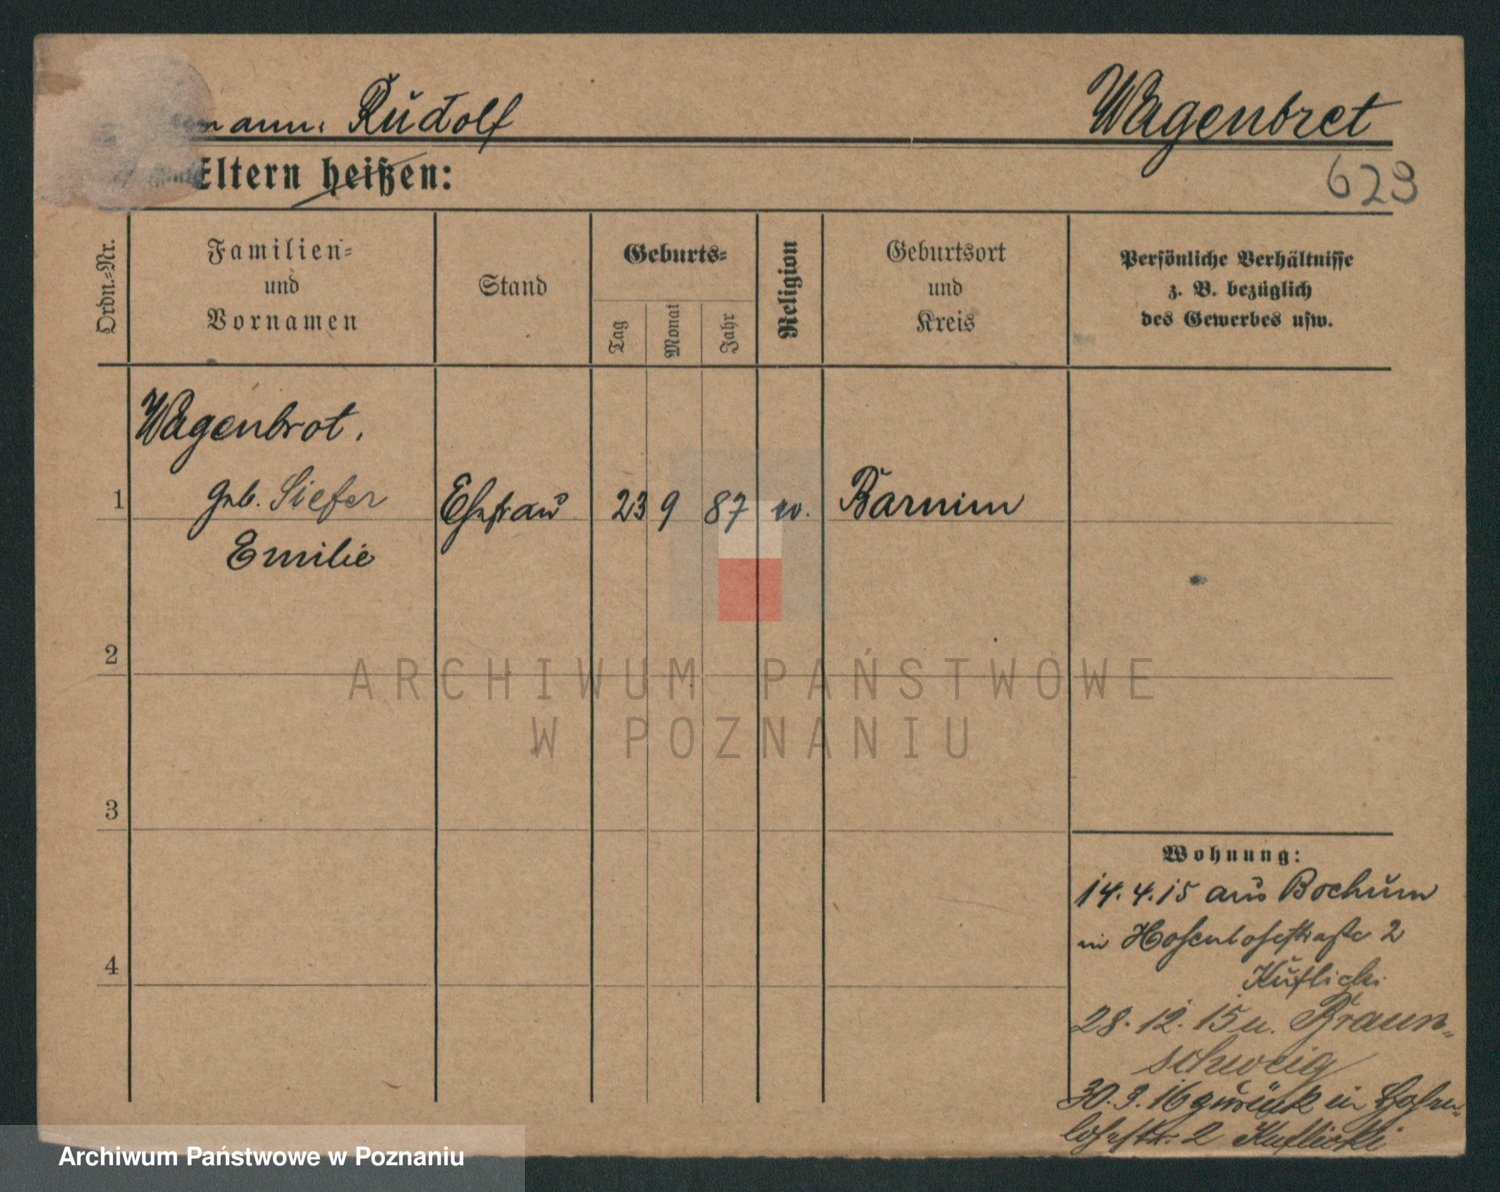 mann: Rudolf
Wagenbret
Eltern heißen:
623
Ordn.-Nr.
Familien-
und
Vornamen
Stand
Geburts-
Tag
Monat
Jahr
Religion
Geburtsort
und
Kreis
Persönliche Verhältnisse
z. B. bezüglich
des Gewerbes usw.
Wagenbrot.
1 geb. Siefer Ehefrau 23 9 87 Barnim
Emilie
2
3
4
Wohnung:
14.4.15 aus Bochum
in Hohenlohestraße 2
28.12.15 n. Braun-
schweig
30.3.16 zurück in Hohen-
lohestr. 2
ARCHIWUM PAŃSTWOWE
W POZNANIU
Archiwum Państwowe w Poznaniu